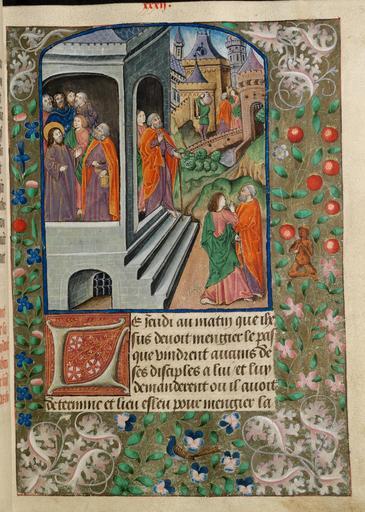 xxxii.
Le jeudi au matin que ihe
sus devoit mengier le pas
que vindrent aucuns de
ses disciples a lui / et luy
demanderent ou il avoit
determine et lieu esleu pour mengier la